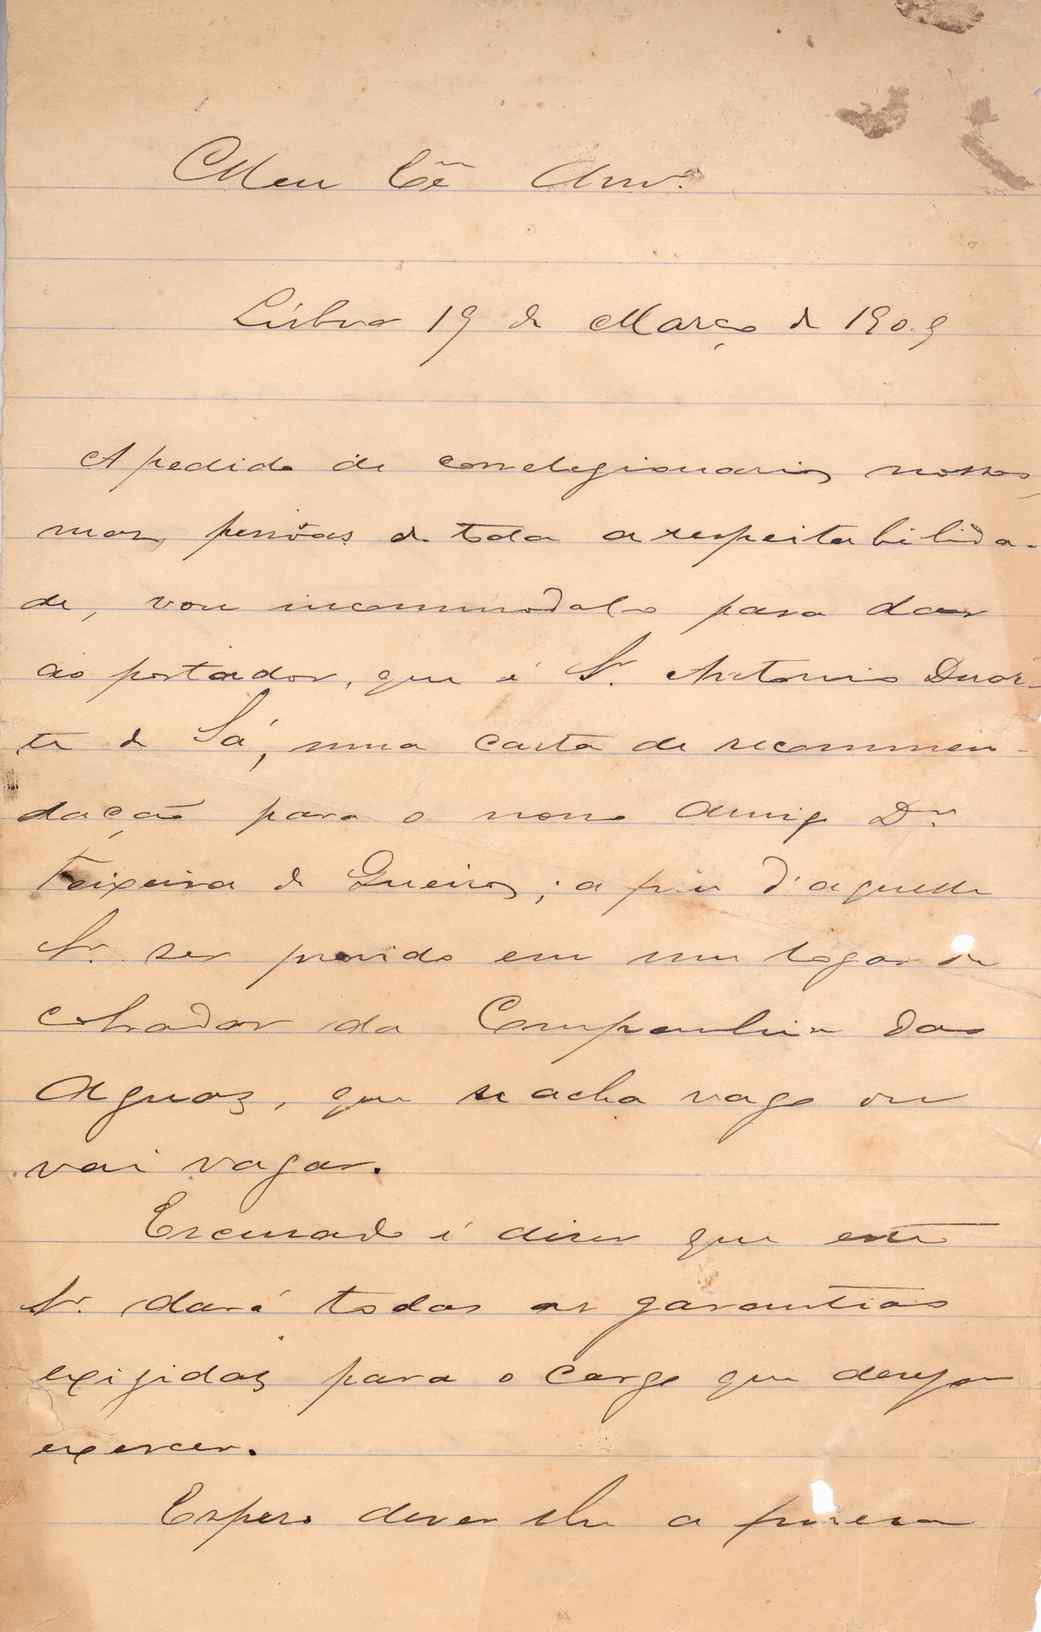 Meu Cº Amº
Lisboa 19 de Março de 1909
A pedido de correlegionarios nossos,
mas, pessôas de toda a respeitabilida-
de, vou incommodal-o para dar
ao portador, que é Sr. Antonio Duar-
te de Sá, uma carta de recommen-
dação para o nosso amigo Dr.
Teixeira de Queiroz; a fim d'aquelle
Sr. ser provido em um logar de
cobrador da Companhia das
Aguas, que se acha vago ou
vai vagar.
Escusado é diser que este
Sr. dará todas as garantias
exigidas para o cargo que deseja
exercer.
Espero dever-lhe a